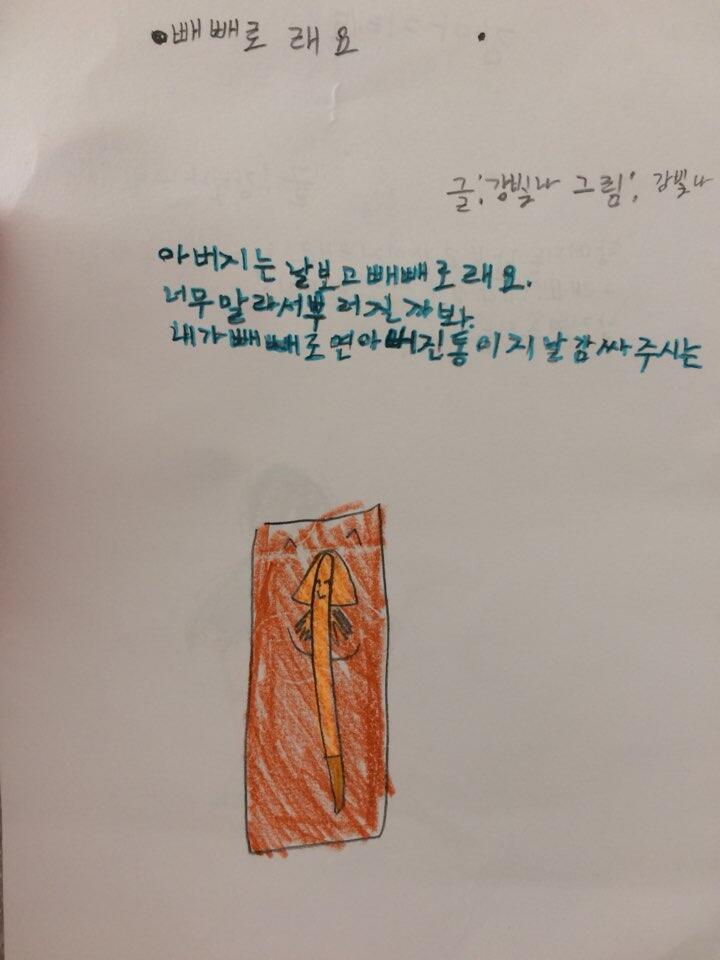 빼빼로 래요
글:강빛나 그림:강빛나
아버지는 날보고 빼빼로 래요.
너무 말라서 뿌러질까봐.
내가 빼빼로면 아버진 통이지 날 감싸 주시는